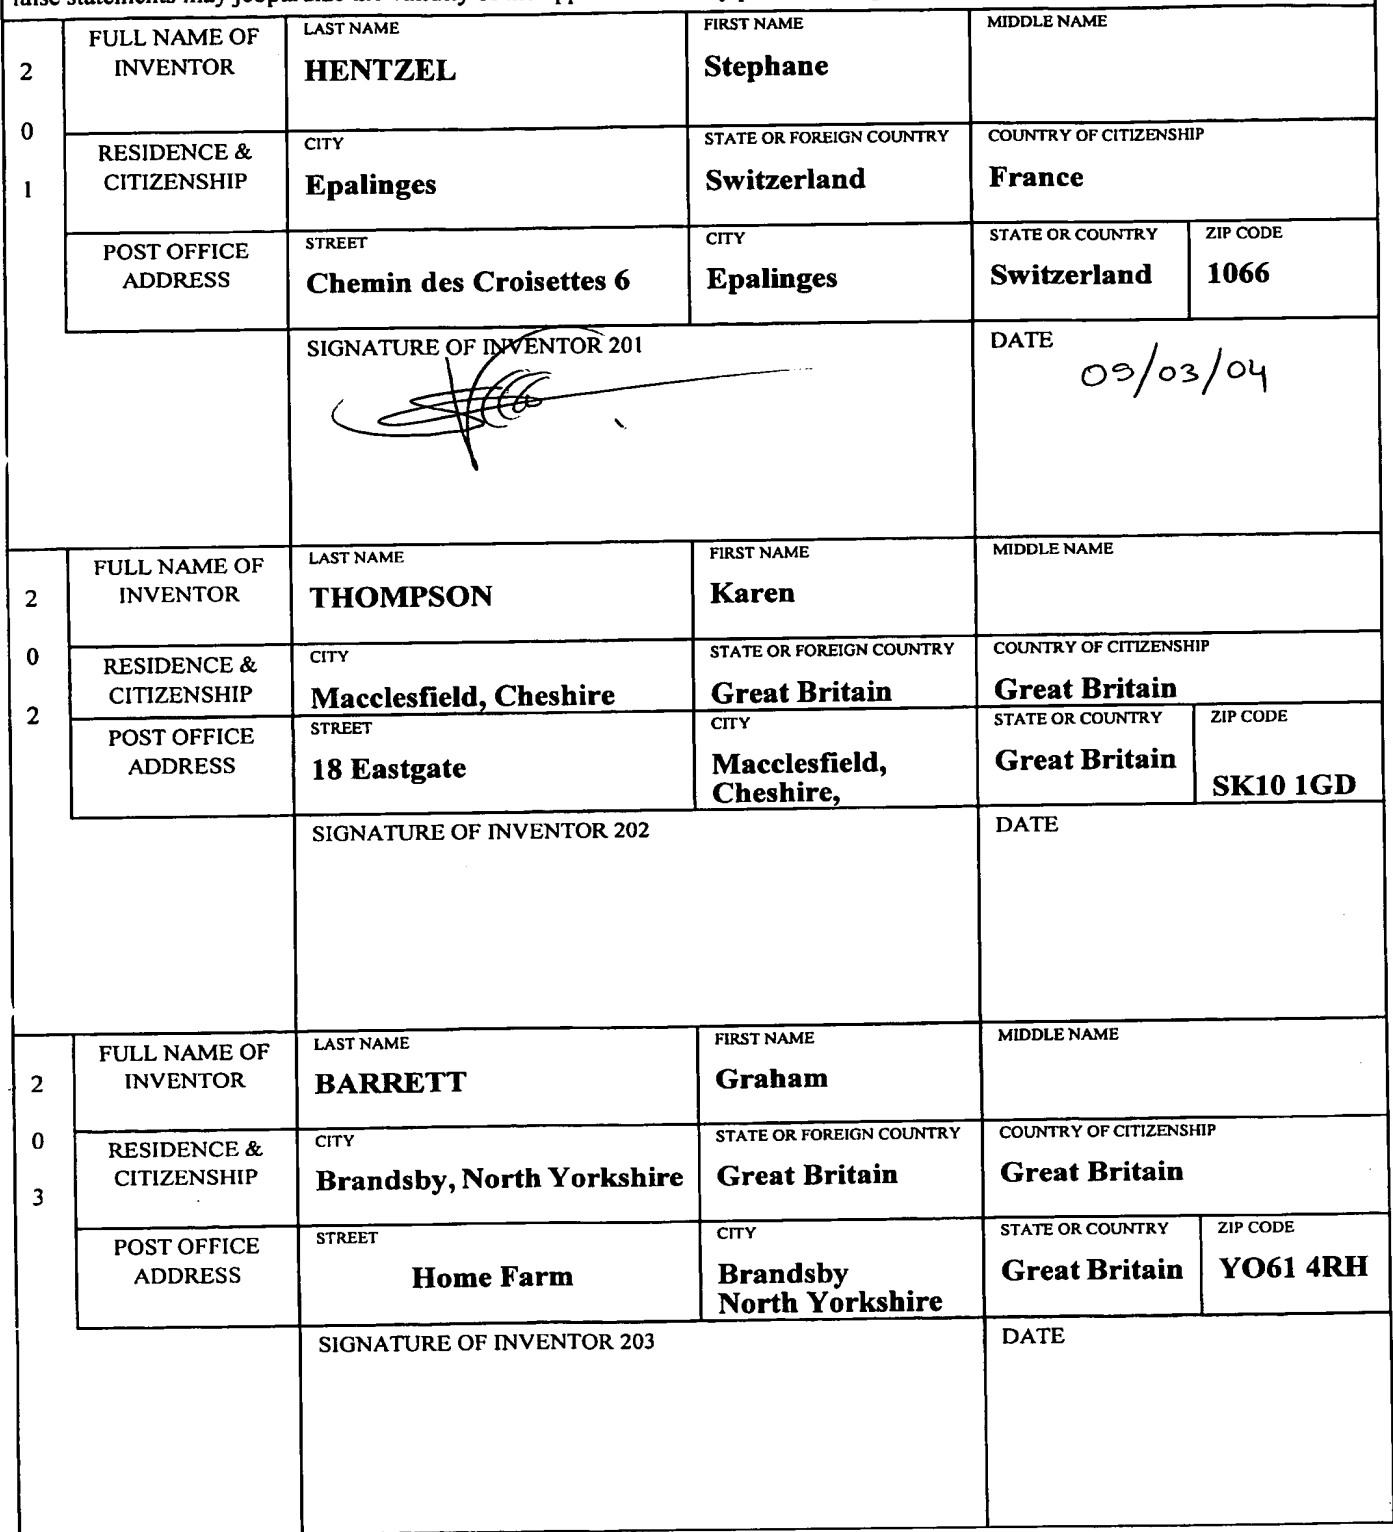 FULL NAME OF INVENTOR
LAST NAME
HENTZEL
FIRST NAME
Stephane
MIDDLE NAME
2
0
1
RESIDENCE & CITIZENSHIP
CITY
Epalinges
STATE OR FOREIGN COUNTRY
Switzerland
COUNTRY OF CITIZENSHIP
France
POST OFFICE ADDRESS
STREET
Chemin des Croisettes 6
CITY
Epalinges
STATE OR COUNTRY
Switzerland
ZIP CODE
1066
SIGNATURE OF INVENTOR 201
DATE
09/03/04
FULL NAME OF INVENTOR
LAST NAME
THOMPSON
FIRST NAME
Karen
MIDDLE NAME
2
0
2
RESIDENCE & CITIZENSHIP
CITY
Macclesfield, Cheshire
STATE OR FOREIGN COUNTRY
Great Britain
COUNTRY OF CITIZENSHIP
Great Britain
POST OFFICE ADDRESS
STREET
18 Eastgate
CITY
Macclesfield,
Cheshire,
STATE OR COUNTRY
Great Britain
ZIP CODE
SK10 1GD
SIGNATURE OF INVENTOR 202
DATE
FULL NAME OF INVENTOR
LAST NAME
BARRETT
FIRST NAME
Graham
MIDDLE NAME
2
0
3
RESIDENCE & CITIZENSHIP
CITY
Brandsby, North Yorkshire
STATE OR FOREIGN COUNTRY
Great Britain
COUNTRY OF CITIZENSHIP
Great Britain
POST OFFICE ADDRESS
STREET
Home Farm
CITY
Brandsby
North Yorkshire
STATE OR COUNTRY
Great Britain
ZIP CODE
YO61 4RH
SIGNATURE OF INVENTOR 203
DATE